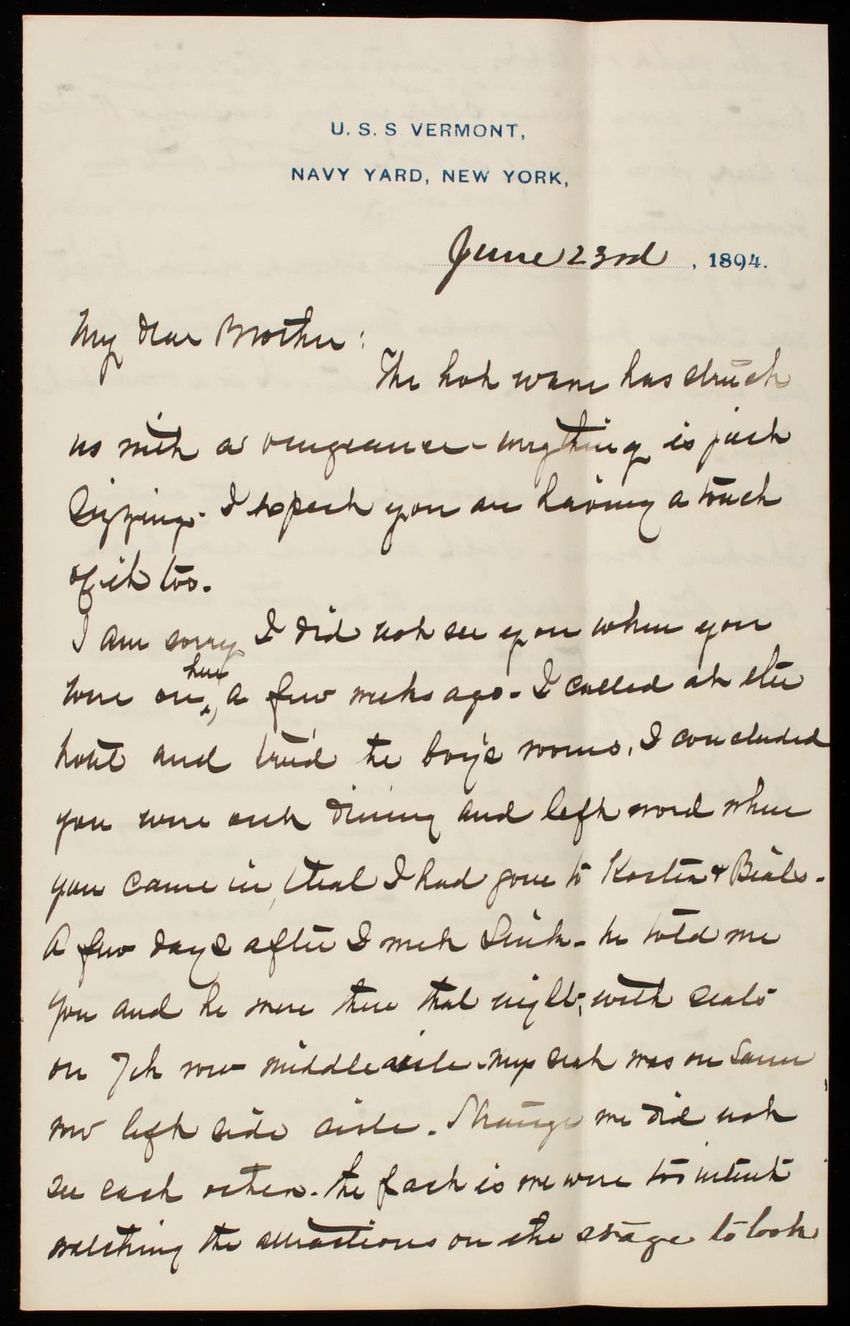 U. S. S VERMONT,
NAVY YARD, NEW YORK,
June 23rd, 1894.
My dear Brother:
The hot wave has struck
us with a vengeance - everything is just
Sizzing - I expect you are having a touch
of it too.
I am sorry I did not see you when you
were on here, a few weeks ago - I called at the
hotel and tried the boy's rooms, I concluded
you were out dining and left word when
you came in, that I had gone to Koster & Bials -
A few days after I met - he told me
you and he were there that night, with seats
on 7th row middle aisle - my seat was on Same
row left side aisle. Strange we did not
see each other - the fact is we were too intent
watching the attractions on the stage to look